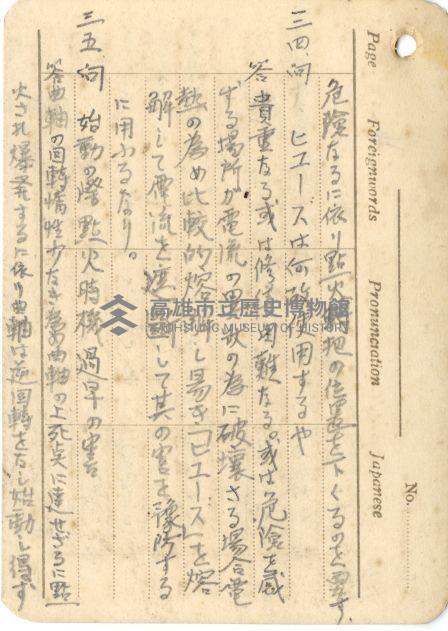 No.
Page Foreignwords Pronunciation Japanese
危險なるに依り點火把の位置を下ぐるのを要す。
三四問 ヒューズは何故用するや
答 貴重なる或は修困難なる。或は危險を感
ずる場所が電流の異狀の為に破壞さる場合電
熱の為め比較的熔し易き「ヒューズ」を熔
解して電流を遮斷して其の害を豫防する
に用ふるなり。
三五問 始動の際點火時機過早の害
答 曲軸の回轉惰性少なき為曲軸の上死点に達せざるに點
火され爆発するに依り曲軸は逆回轉をなし始動し得ず
高雄市立歷史博物館
KAOHSIUNG MUSEUM OF HISTORY